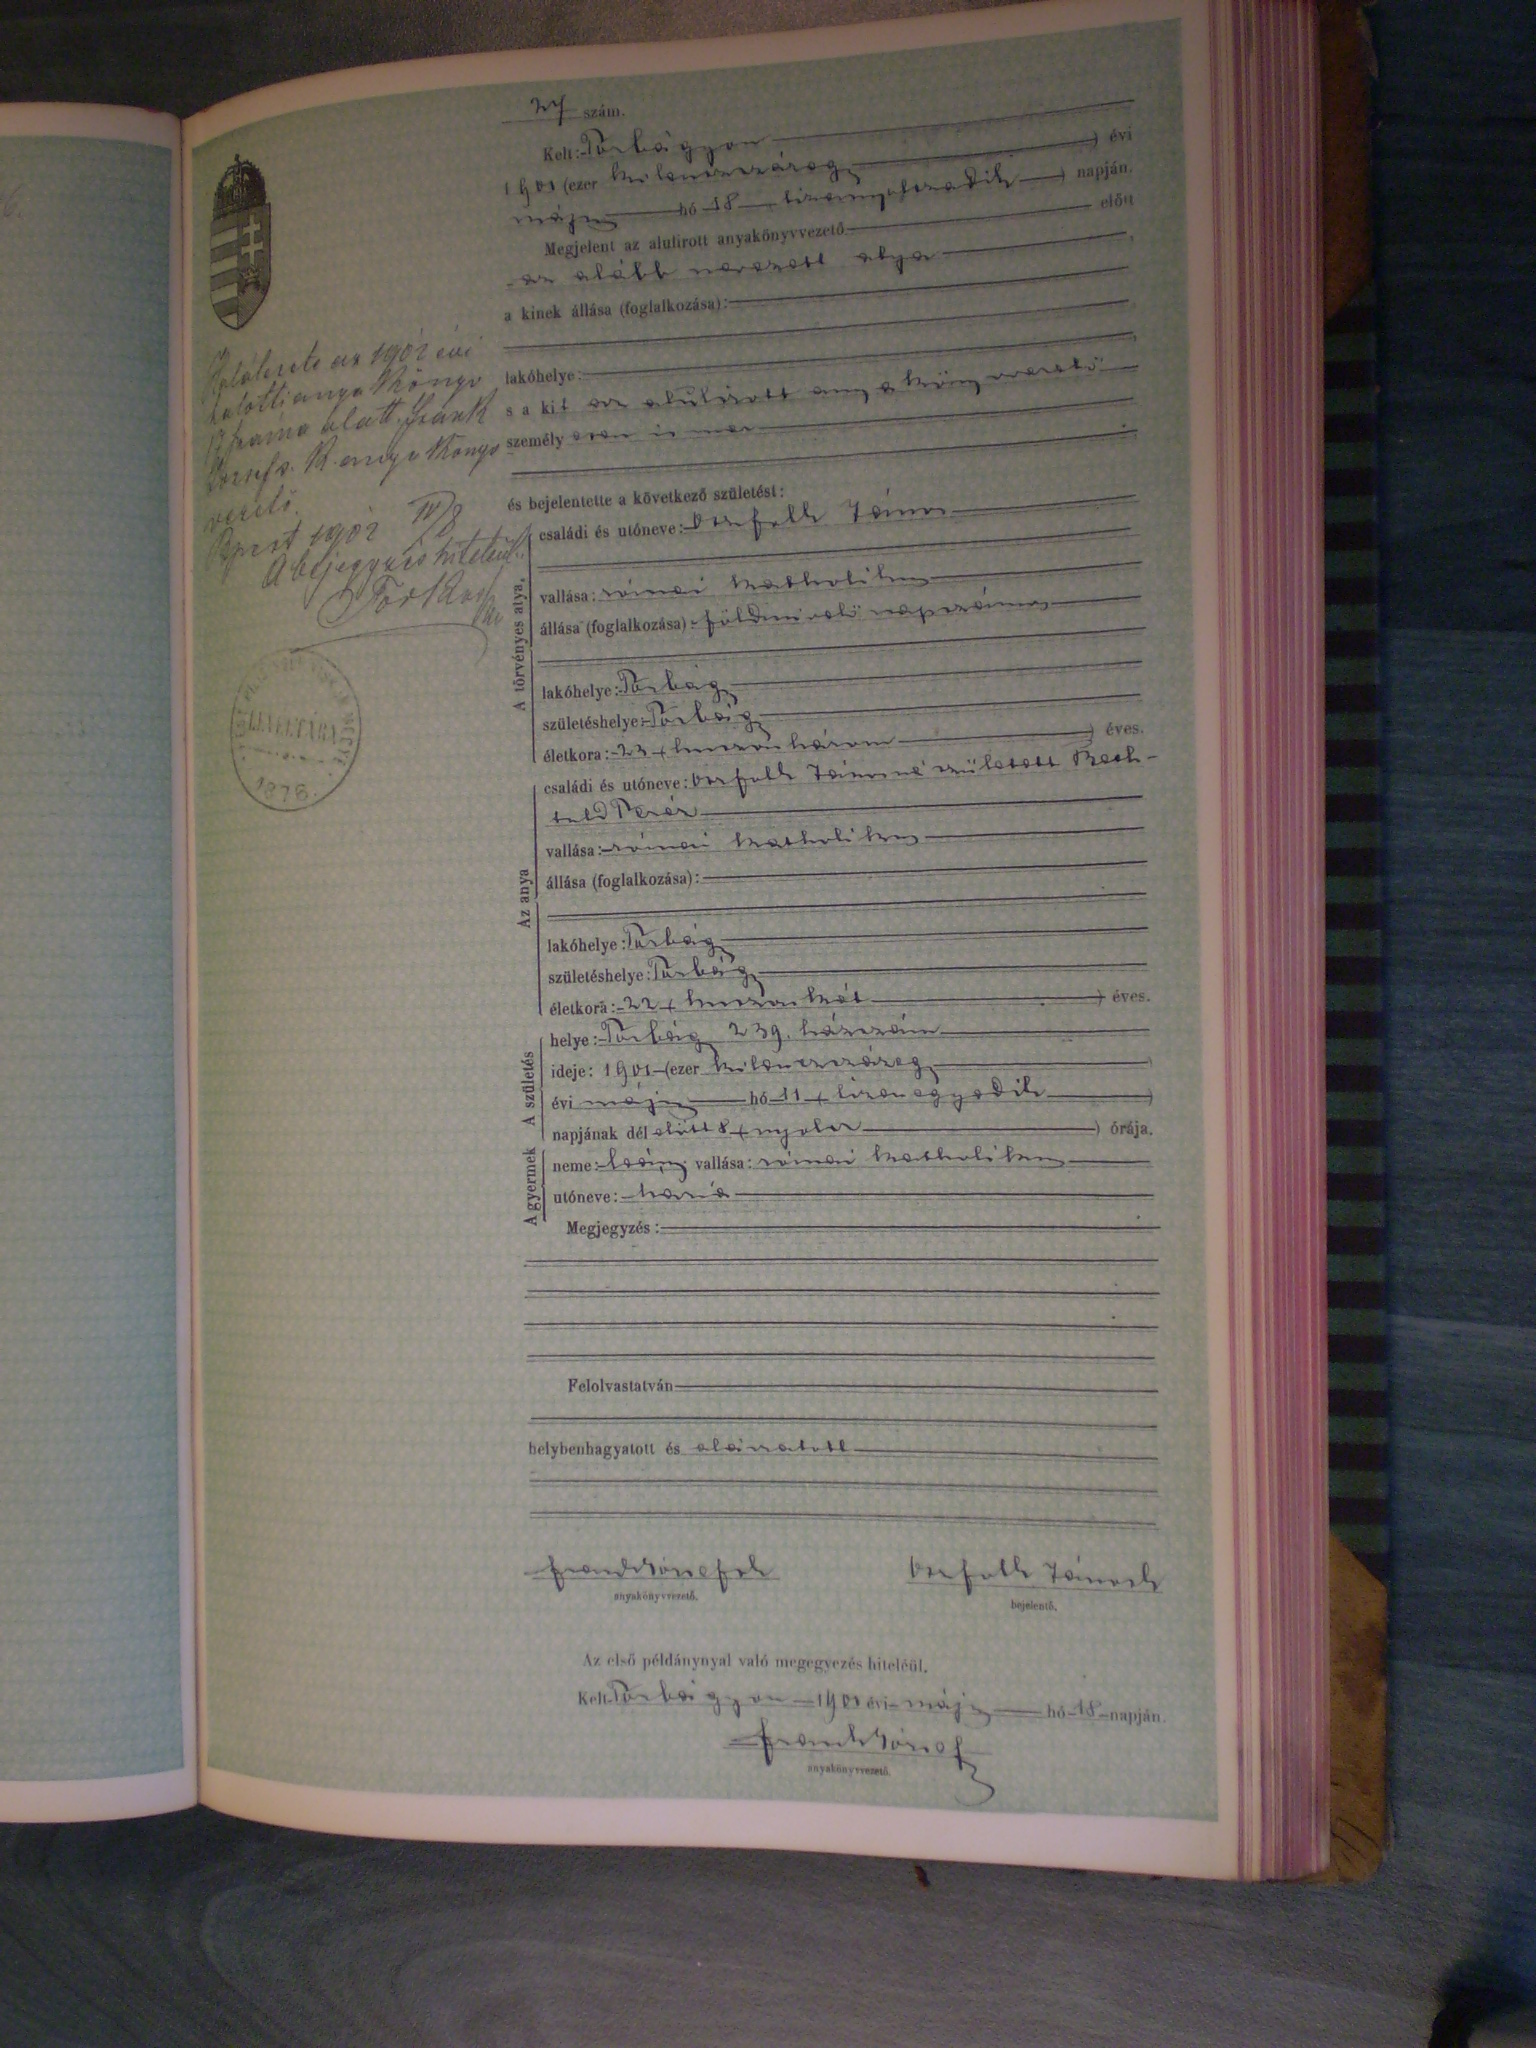 27 szám.
Kelt: Torbágyon
1901 (ezer kilenczszázegy) évi
május hó 18 tizennyolczadik) napján.
Megjelent az alulirott anyakönyvvezető előtt
az alább nevezett atya
a kinek állása (foglalkozása):
lakóhelye:
s a kit az alulirott anyakönyvvezető
személyesen ismer
és bejelentette a következő születést:
A törvényes atya,
családi és utóneve: János
vallása: római katholikus
állása (foglalkozása): földmivelő napszámos
lakóhelye: Torbágy
születéshelye: Torbágy
életkora: 23 (huszonhárom) éves.
Az anya
családi és utóneve: Jánosné született
Teréz
vallása: római katholikus
állása (foglalkozása):
lakóhelye: Torbágy
születéshelye: Torbágy
életkora: 22 (huszonkét) éves.
A születés
helye: Torbágy 239. házszám
ideje: 1901 (ezer kilenczszázegy)
évi május hó 11 (tizenegyedik)
napjának dél előtt 8 (nyolcz) órája.
A gyermek
neme: leány vallása: római katholikus
utóneve: Mária
Megjegyzés:
Felolvastatván
helybenhagyatott és aláiratott
Frank József
anyakönyvvezető.
János
bejelentő.
Az első példánynyal való megegyezés hiteléül.
Kelt Torbágyon 1901 évi május hó 18 napján.
Frank József
anyakönyvvezető.
az 1902 évi
halotti anyakönyv
17 száma alatt. Frank
József s. k. anyakönyv
vezető.
Bpest 1902 IV/8
A bejegyzés hiteléül:
LEVÉLTÁRA
1876.